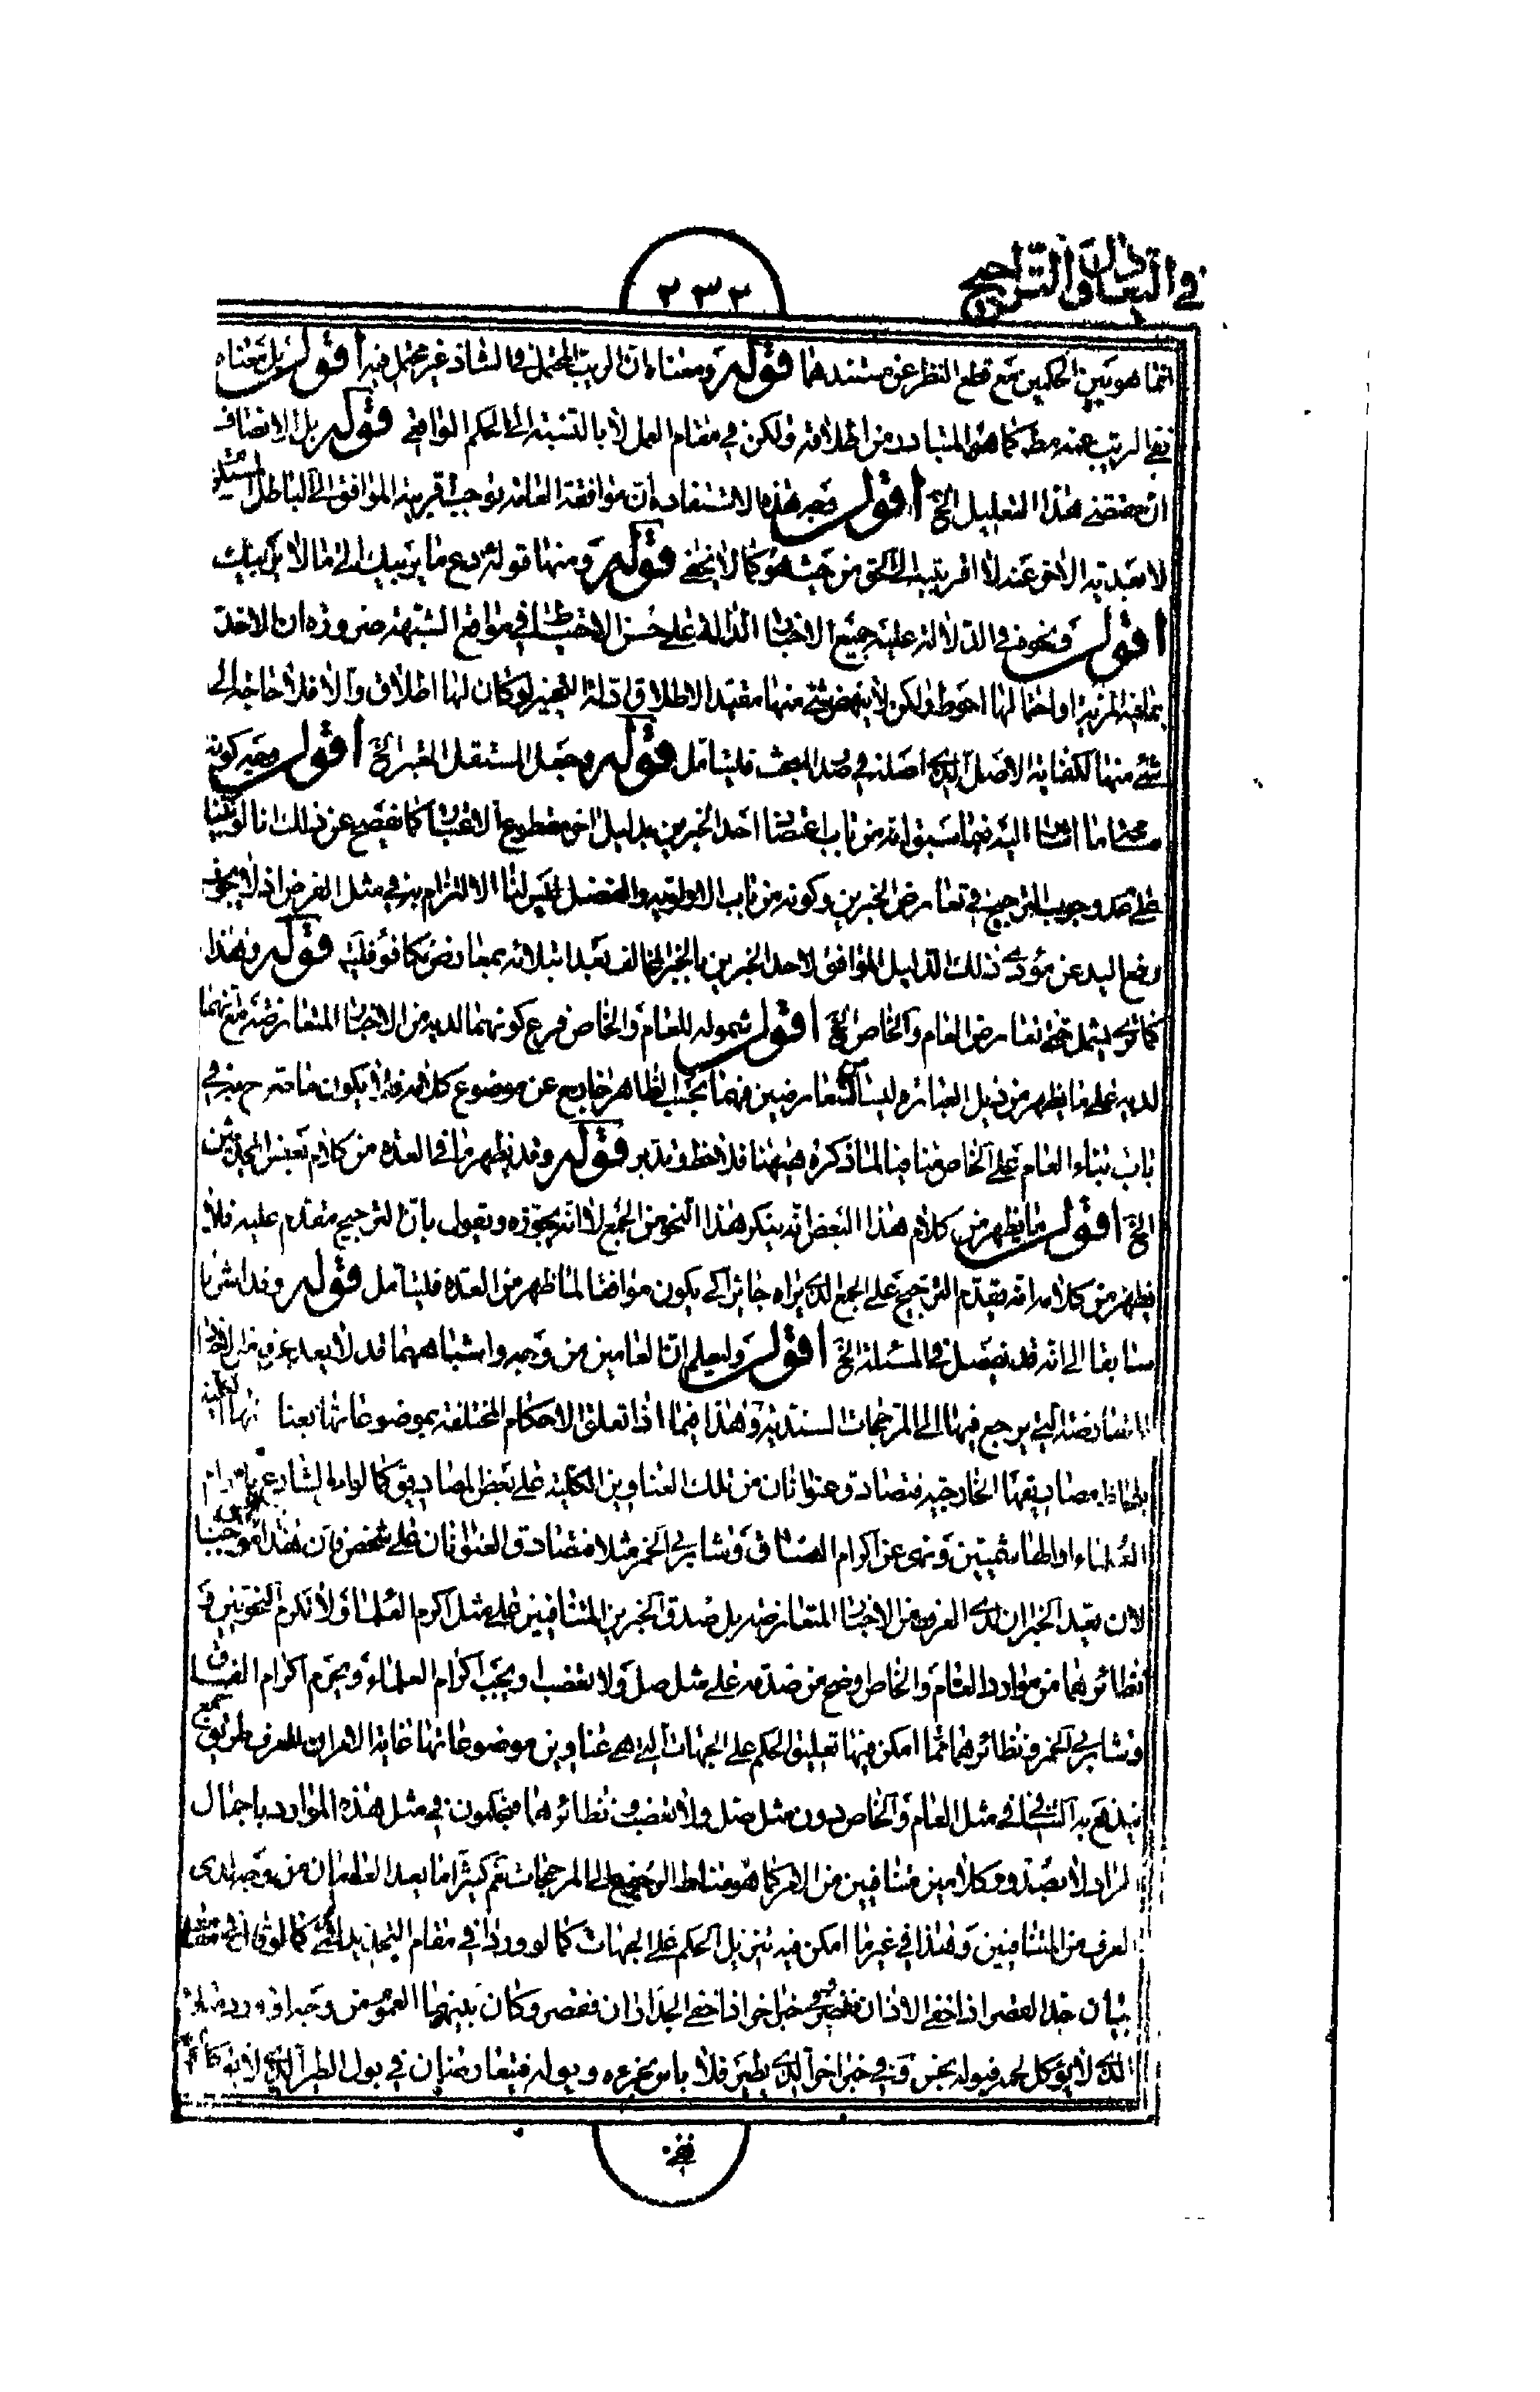 في التعادل والتراجيح
٢٣٢
انما هو بين الحكمين مع قطع النظر عن مستندهما قوله ومعناه ان الريب المحتمل في الشاذ غير محتمل فيه اقول بل معناه
نفي الريب عنه مط كما هو المتبادر من اطلاقه ولكن في مقام العمل لا بالنسبة الى الحكم الواقعي قوله بل الانصاف
ان مقتضى هذا التعليل الخ اقول وجه هذه الاستفادة ان موافقة العامة توجب قربية الموافق الى الباطل المستلزم
لابعدية الاخر عنه لا اقربيته الى الحق من حيث هو كما لا يخفى قوله ومنها قوله دع ما يريبك الى ما لا يريبك
اقول ونحوه في الدلالة عليه جميع الاخبار الدالة على حسن الاحتياط في مواقع الشبهة ضرورة ان الاخذ
بما فيه المزية او احتمالها احوط ولكن لا ينهض شئ منها مقيدا لاطلاق ادلة التخيير لو كان لها اطلاق والا فلا حاجة الى
شئ منها لكفاية الاصل الذي اصله في صدر المبحث فليتامل قوله وجعل المستقل المعتبر الخ اقول وجه كونه
اشار اليه فيما سبق انه من باب اعتضاد احد الخبرين بدليل اخر مقطوع الاعتبار كما يفصح عن ذلك انا لو بنينا
على عدم وجوب الترجيح في تعارض الخبرين وكونه من باب الاولوية والفضل ليس لنا الالتزام به في مثل الفرض اذ لا يجوز
رفع اليد عن مؤدى ذلك الدليل الموافق لاحد الخبرين بالخبر المخالف بعد ابتلائه بمعارض مكافؤ فليت قوله وهذا
كما ترى يشمل حتى تعارض العام والخاص الخ اقول شموله للعام والخاص فرع كونهما لديه من الاخبار المتعارضة مع انهما
لديه على ما يظهر من ذيل العبارة ليسا بمتعارضين فهما بحسب الظاهر خارج عن موضوع كلامه فلا يكون ما صرح به في
باب بناء العام على الخاص منافيا لما ذكره هيهنا فلاحظ وتدبر قوله وقد يظهر ما في العدة من كلام بعض المحدثين
الخ اقول ما يظهر من كلام هذا البعض انه ينكر هذا النحو من الجمع لا انه يجوزه ويقول بان الترجيح مقدم عليه فلا
يظهر من كلامه انه يقدم الترجيح على الجمع الذي يراه جائزا كي يكون موافقا لما ظهر من العدة فليتامل قوله وقد اشرنا
سابقا الى انه قد يفصل في المسئلة الخ اقول وليعلم ان العامين من وجه واشباههما قد لا يعد عرفا من الاخبار
المتعارضة التي يرجع فيها الى المرجحات السندية وهذا فيما اذا تعلق الاحكام المختلفة بموضوعاتها بعناوينها الكلية
بلحاظ مصاديقها الخارجية فتصادق عنوانان من تلك العناوين الكلية على بعض المصاديق كما لو امر الشارع باكرام
العلماء او الهاشميين ونهى عن اكرام الفساق وشاربي الخمر مثلا فتصادق العنوانان على شخص فان هذا موجبا
لان يعد الخبران لدى العرف من الاخبار المتعارضة بل صدق الخبرين المتنافيين على مثل اكرم العلماء ولا تكرم النحويين و
نظائرهما من موارد العام والخاص اوضح من صدقه على مثل صل ولا تغضب ويجب اكرام العلماء ويحرم اكرام الفساق
وشاربي الخمر ونظائرهما مما امكن فيها تعليق الحكم على الجهات التي هي عناوين موضوعاتها غاية الامر ان للعرف طريق جمع
يندفع به التنافي في مثل العام والخاص دون مثل صل ولا تغضب ونظائرهما فيحكمون في مثل هذه الموارد باجمال
المراد لا بصدور كلامين متنافيين من الامر كما هو مناط الرجوع الى المرجحات نعم كثيرا ما يعد العامان من وجه لدى
العرف من المتنافيين وهذا في غير ما امكن فيه تنزيل الحكم على الجهات كما لو وردا في مقام التحديد
بيان حد القصر اذا خفي الاذان فقصر وخبر اخر اذا خفى الجدران فقصر وكان بينهما العموم من وجه
الذي لا يؤكل لحمه فبوله نجس وفي خبر اخر الذي يطير فلا باس بخرءه وبوله فيتعارضان في بول الطير الذي لا